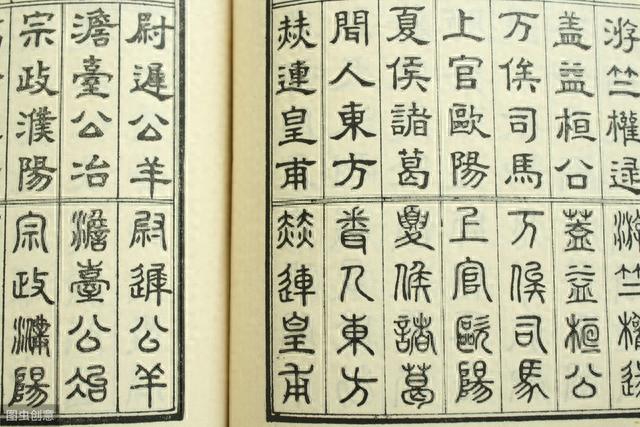 游竺權逯
盖益桓公
万俟司馬
上官歐陽
夏侯諸葛
聞人東方
赫連皇甫
游竺權逯
蓋益桓公
万俟司馬
上官歐陽
夏侯諸葛
人東方
赫連皇甫
尉遲公羊
澹臺公冶
宗政濮陽
尉遲公羊
澹臺公冶
宗政濮陽
图虫创意